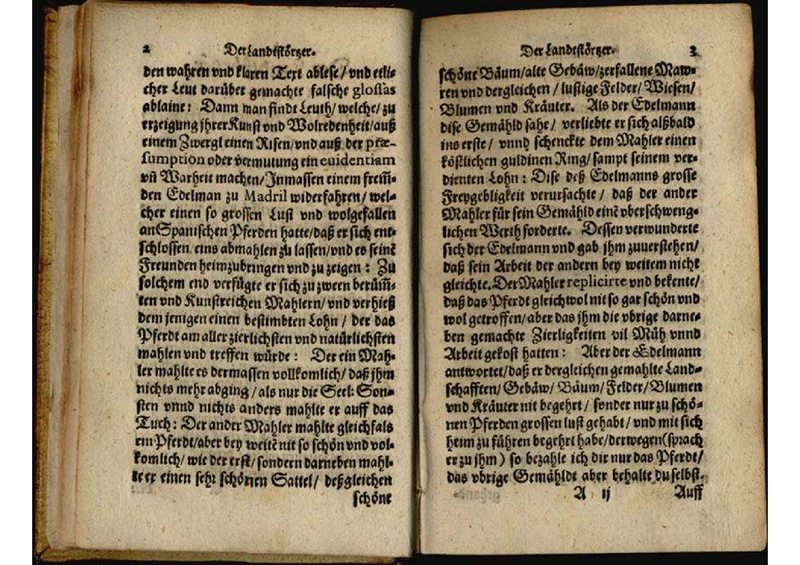 2
Der Landtstörtzer.
den wahren vnd klaren Text ablese/ vnd etli-
cher Leut darüber gemachte falsche glossas
ablaine: Dann man findt Leuth/ welche/ zu
erzeigung jhrer Kunst vnd Wolredenheit/ auß
einem Zwergl einen Risen/ vnd auß der præ-
sumption oder vermutung ein euidentiam
vñ Warheit machen/ Inmassen einem frem̃-
den Edelman zu Madril widerfahren/ wel-
cher einen so grossen Lust vnd wolgefallen
an Spanischen Pferden hatte/ daß er sich ent-
schlossen/ eins abmahlen zu lassen/ vnd es seinẽ
Freunden heimzubringen vnd zu zeigen: Zu
solchem end verfügte er sich zu zween berüm̃-
ten vnd Kunstreichen Mahlern/ vnd verhieß
dem jenigen einen bestimbten Lohn/ der das
Pferdt am aller zierlichsten vnd natürlichsten
mahlen vnd treffen würde: Der ein Mah-
ler mahlte es dermassen vollkomlich/ daß jhm
nichts mehr abging/ als nur die Seel: Son-
sten vnnd nichts anders mahlte er auff das
Tuch: Der ander Mahler mahlte gleichfals
ein Pferdt/ aber bey weitẽ nit so schön vnd vol-
komlich/ wie der erst/ sondern darneben mahl-
te er einen sehr schönen Sattel/ deßgleichen
schöne
Der Landtstörtzer.
3
schöne Bäum/ alte Gebäw/ zerfallene Maw-
ren vnd dergleichen/ lustige Felder/ Wiesen/
Blumen vnd Kräuter. Als der Edelmann
dise Gemähld sahe/ verliebte er sich alßbald
ins erste/ vnnd schenckte dem Mahler einen
köstlichen guldinen Ring/ sampt seinem ver-
dienten Lohn: Dise deß Edelmanns grosse
Freygebligkeit verursachte/ daß der ander
Mahler für sein Gemähld einẽ vberschweng-
lichen Werth forderte. Dessen verwunderte
sich der Edelmann vnd gab jhm zuuerstehen/
daß sein Arbeit der andern bey weitem nicht
gleichte. Der Mahler replicirte vnd bekente/
daß das Pferdt gleichwol nit so gar schön vnd
wol getroffen/ aber das jhm die vbrige darne-
ben gemachte Zierligkeiten vil Müh vnnd
Arbeit gekost hatten: Aber der Edelmann
antwortet/ daß er dergleichen gemahlte Land-
schafften/ Gebäw/ Bäum/ Felder/ Blumen
vnd Kräuter nit begehrt/ sonder nur zu schö-
nen Pferden grossen lust gehabt/ vnd mit sich
heim zu führen begehrt habe/ derwegen (sprach
er zu jhm) so bezahle ich dir nur das Pferdt/
das vbrige Gemähldt aber behalte du selbst.
A ij
Auff